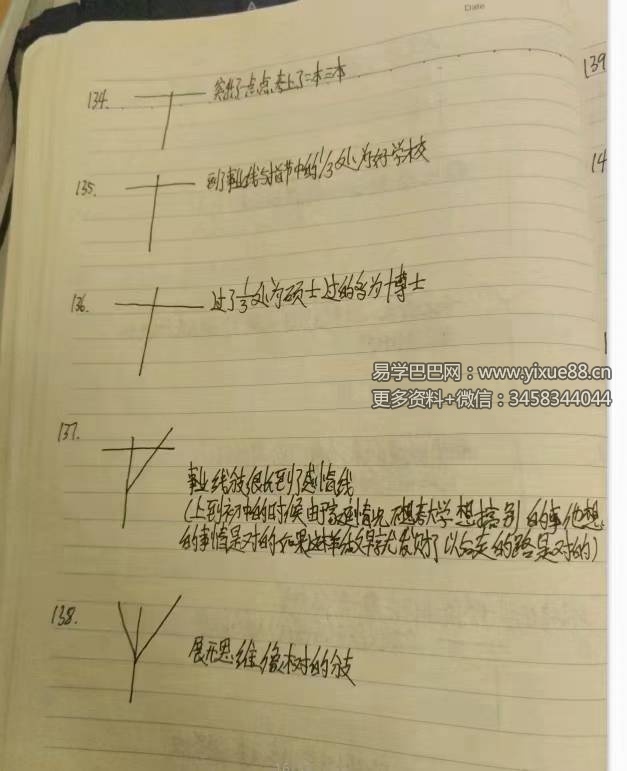 Date
139
134. 突出了一点点,考上了二本三本
135. 到了事业线与指节中的1/3处为好学校
14
136. 过了1/3处为硕士 过的多为博士
易学巴巴网:www.yixue88.cn
更多资料+微信:3458344044
137. 事业线分支很长到了感情线
(上到初中的时候由于家庭情况不想考大学想搞别的事他想
的事情是对的 如果这样结交早就发财了 以后走的路是对的)
138. 展开思维像树的分支